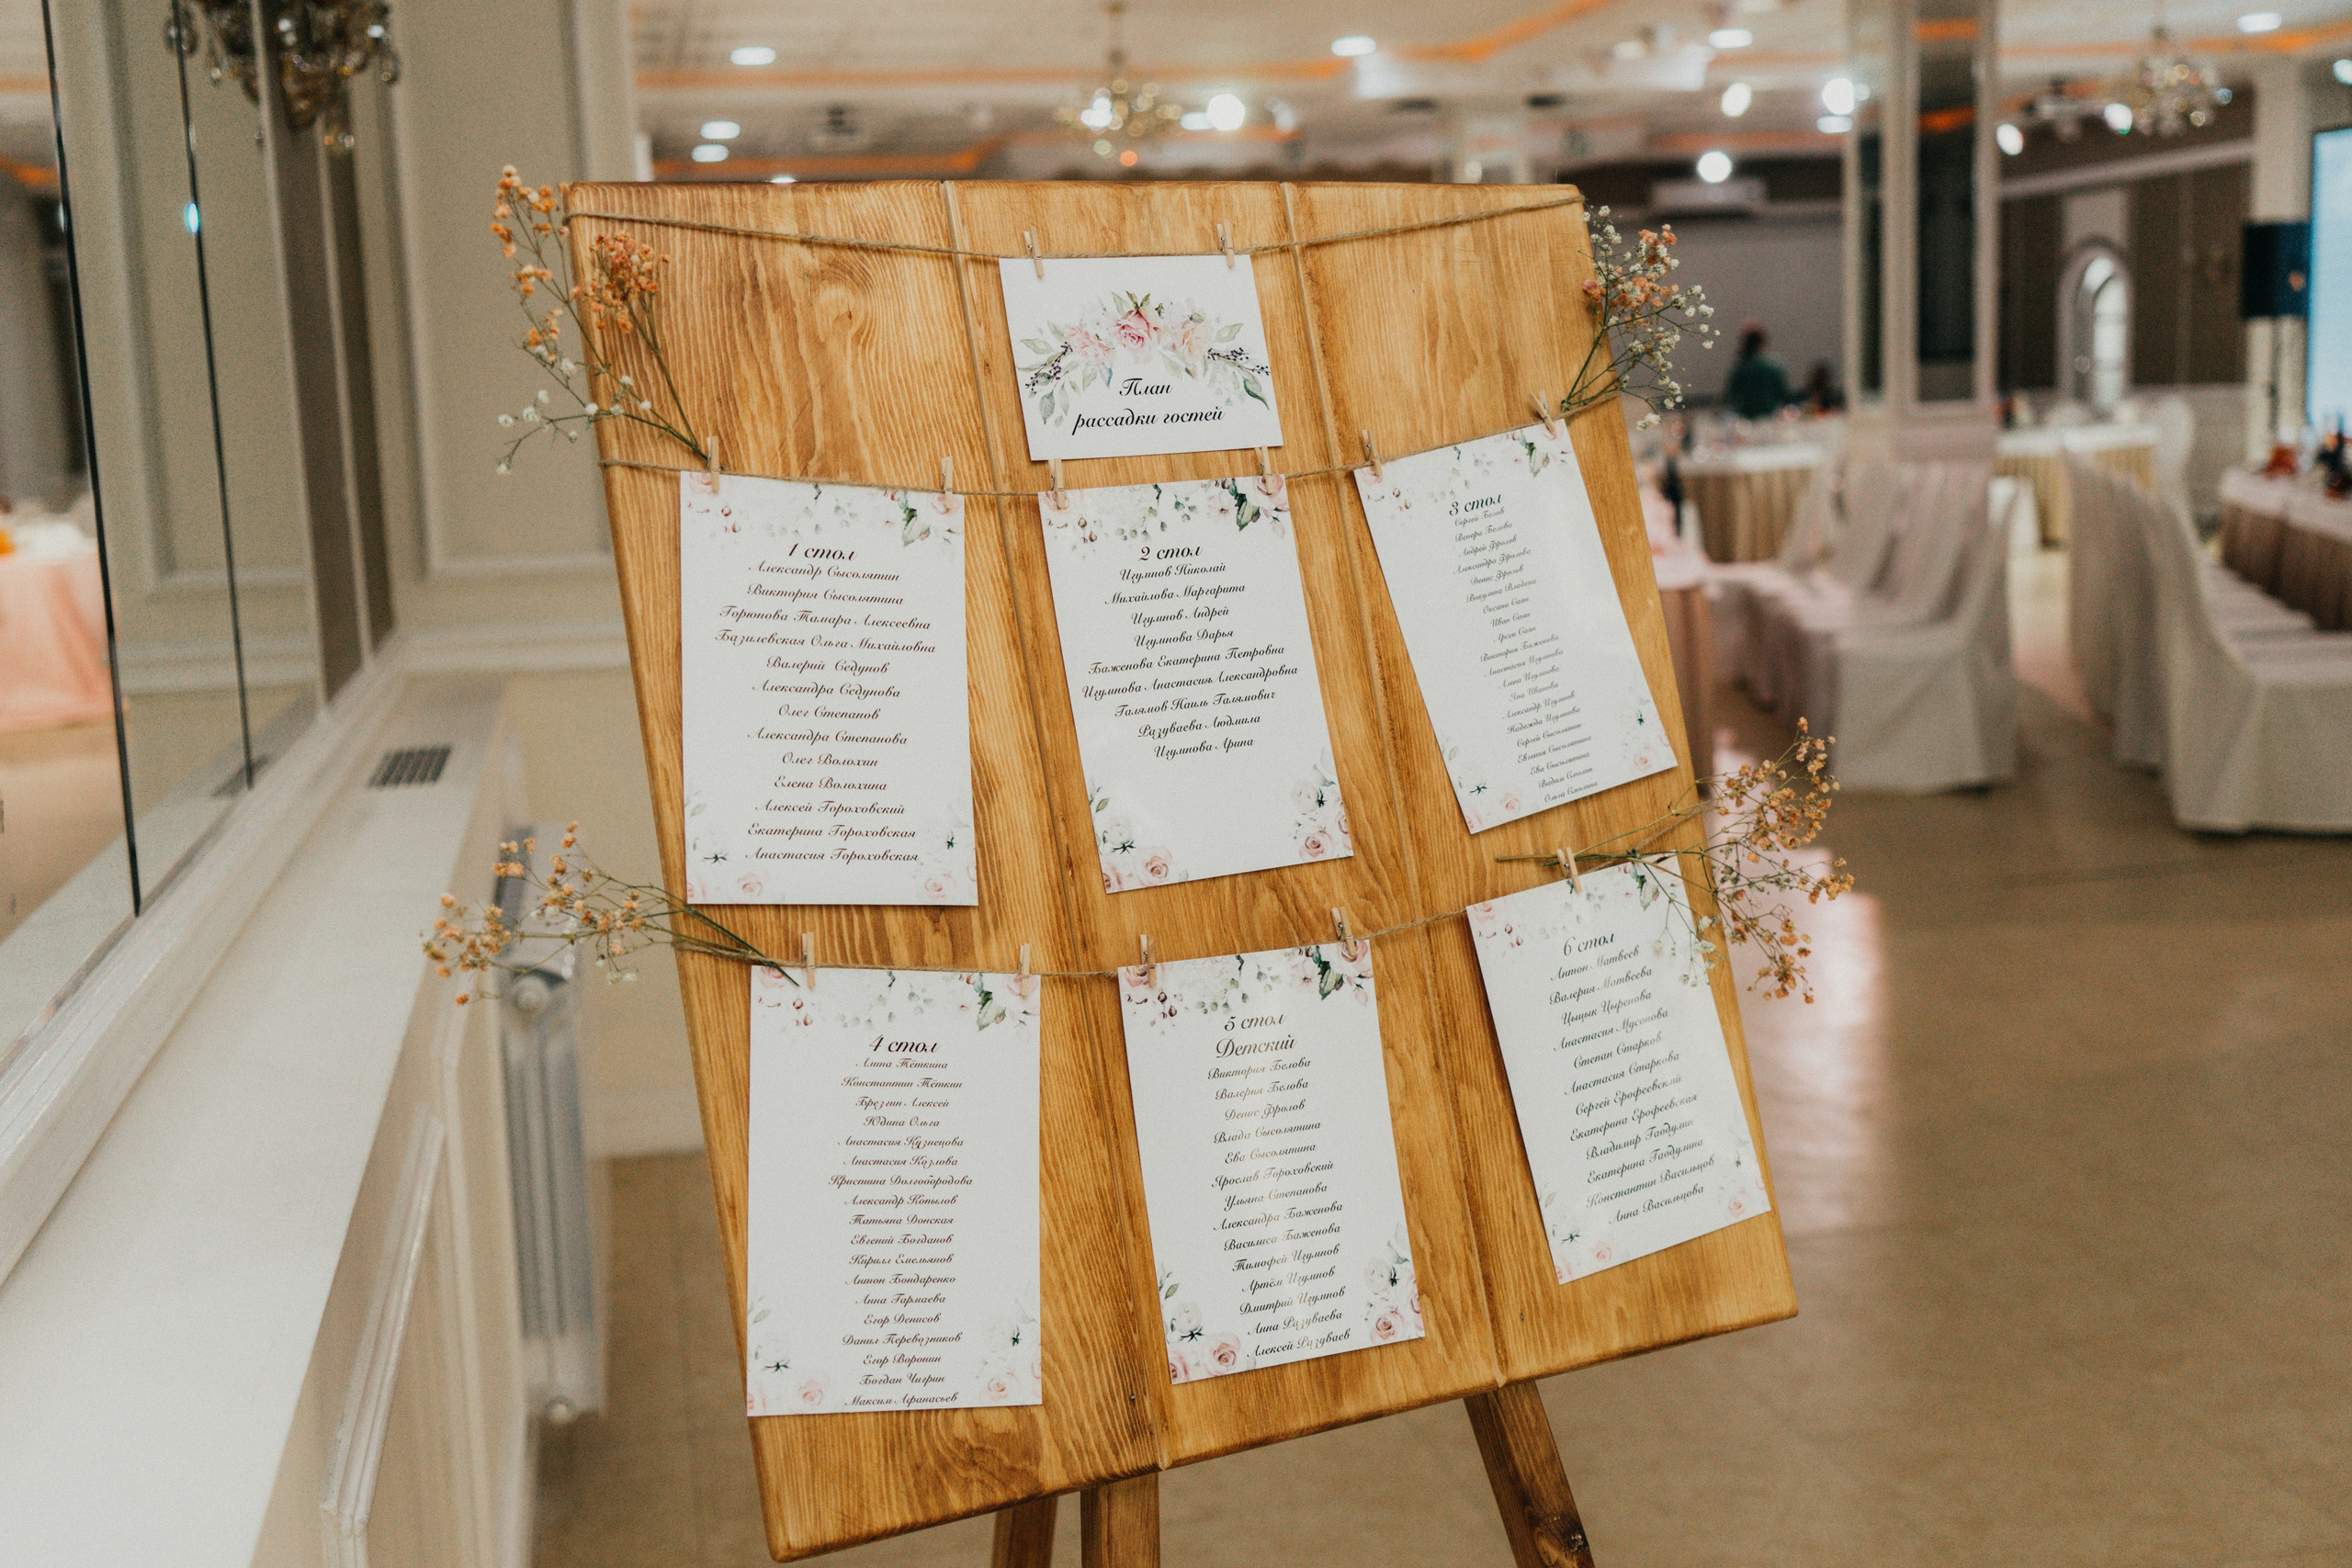 План
рассадки гостей
1 стол
Александр Сысолятин
Виктория Сысолятина
Горюнова Тамара Алексеевна
Базилевская Ольга Михайловна
Валерий Седунов
Александра Седунова
Олег Степанов
Александра Степанова
Олег Волохин
Елена Волохина
Алексей Гороховский
Екатерина Гороховская
Анастасия Гороховская
2 стол
Игумнов Николай
Михайлова Маргарита
Игумнов Андрей
Игумнова Дарья
Баженова Екатерина Петровна
Игумнова Анастасия Александровна
Галямов Наиль Галямович
Разуваева Людмила
Игумнова Арина
3 стол
Сергей Белов
Венера Белова
Андрей Фролов
Александра Фролова
Денис Фролов
Владлена
Оксана Саян
Иван Саян
Арсен Саян
Виктория Баженова
Анастасия Игумнова
Алена Игумнова
Яна Иванова
Александр Игумнов
Надежда Игумнова
Сергей Сысолятин
Евгения Сысолятина
Ева Сысолятина
Вадим Смолин
Ольга Смолина
4 стол
Алина Тёткина
Константин Тёткин
Брезгин Алексей
Юдина Ольга
Анастасия Кузнецова
Анастасия Козлова
Кристина Долгобородова
Александр Копылов
Татьяна Донская
Евгений Богданов
Кирилл Емельянов
Антон Бондаренко
Анна Гармаева
Егор Денисов
Данил Перевозников
Егор Воронин
Богдан Чигрин
Максим Афанасьев
5 стол
Детский
Виктория Белова
Валерия Белова
Денис Фролов
Влада Сысолятина
Ева Сысолятина
Ярослав Гороховский
Ульяна Степанова
Александра Баженова
Василиса Баженова
Тимофей Игумнов
Артём Игумнов
Дмитрий Игумнов
Анна Разуваева
Алексей Разуваев
6 стол
Антон Матвеев
Валерия Матвеева
Цыцык Цыренова
Анастасия Мусонова
Степан Старков
Анастасия Старкова
Сергей Ерофеевский
Екатерина Ерофеевская
Владимир Габдулин
Екатерина Габдулина
Константин Васильцов
Анна Васильцова